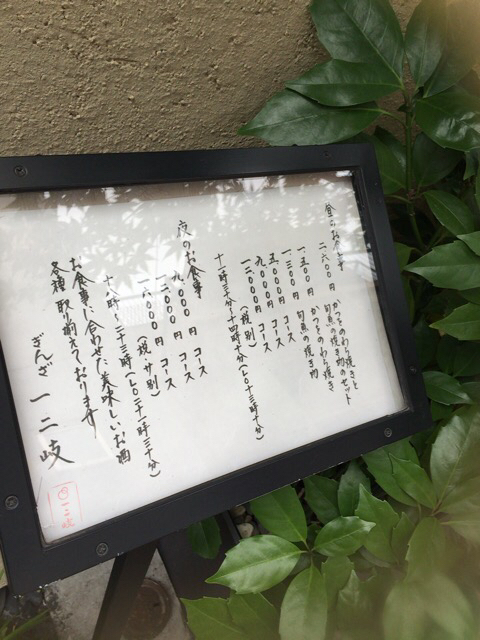 昼のお食事
二.六〇〇円 かつをのわら焼きと
旬魚の焼き物のセット
一.五〇〇円 かつをのわら焼き
一.三〇〇円 旬魚の焼き物
五.〇〇〇円 コース
九.〇〇〇円 コース
一二.〇〇〇円 コース (税別)
十一時三十分〜十四時十分(LO十三時十分)
夜のお食事
九.〇〇〇円 コース
一二.〇〇〇円 コース
一六.〇〇〇円 (税サ別)
十八時〜二十三時(LO二十一時三十分)
お食事に合わせた美味しいお酒
各種取り揃えております
ぎんざ 一二岐